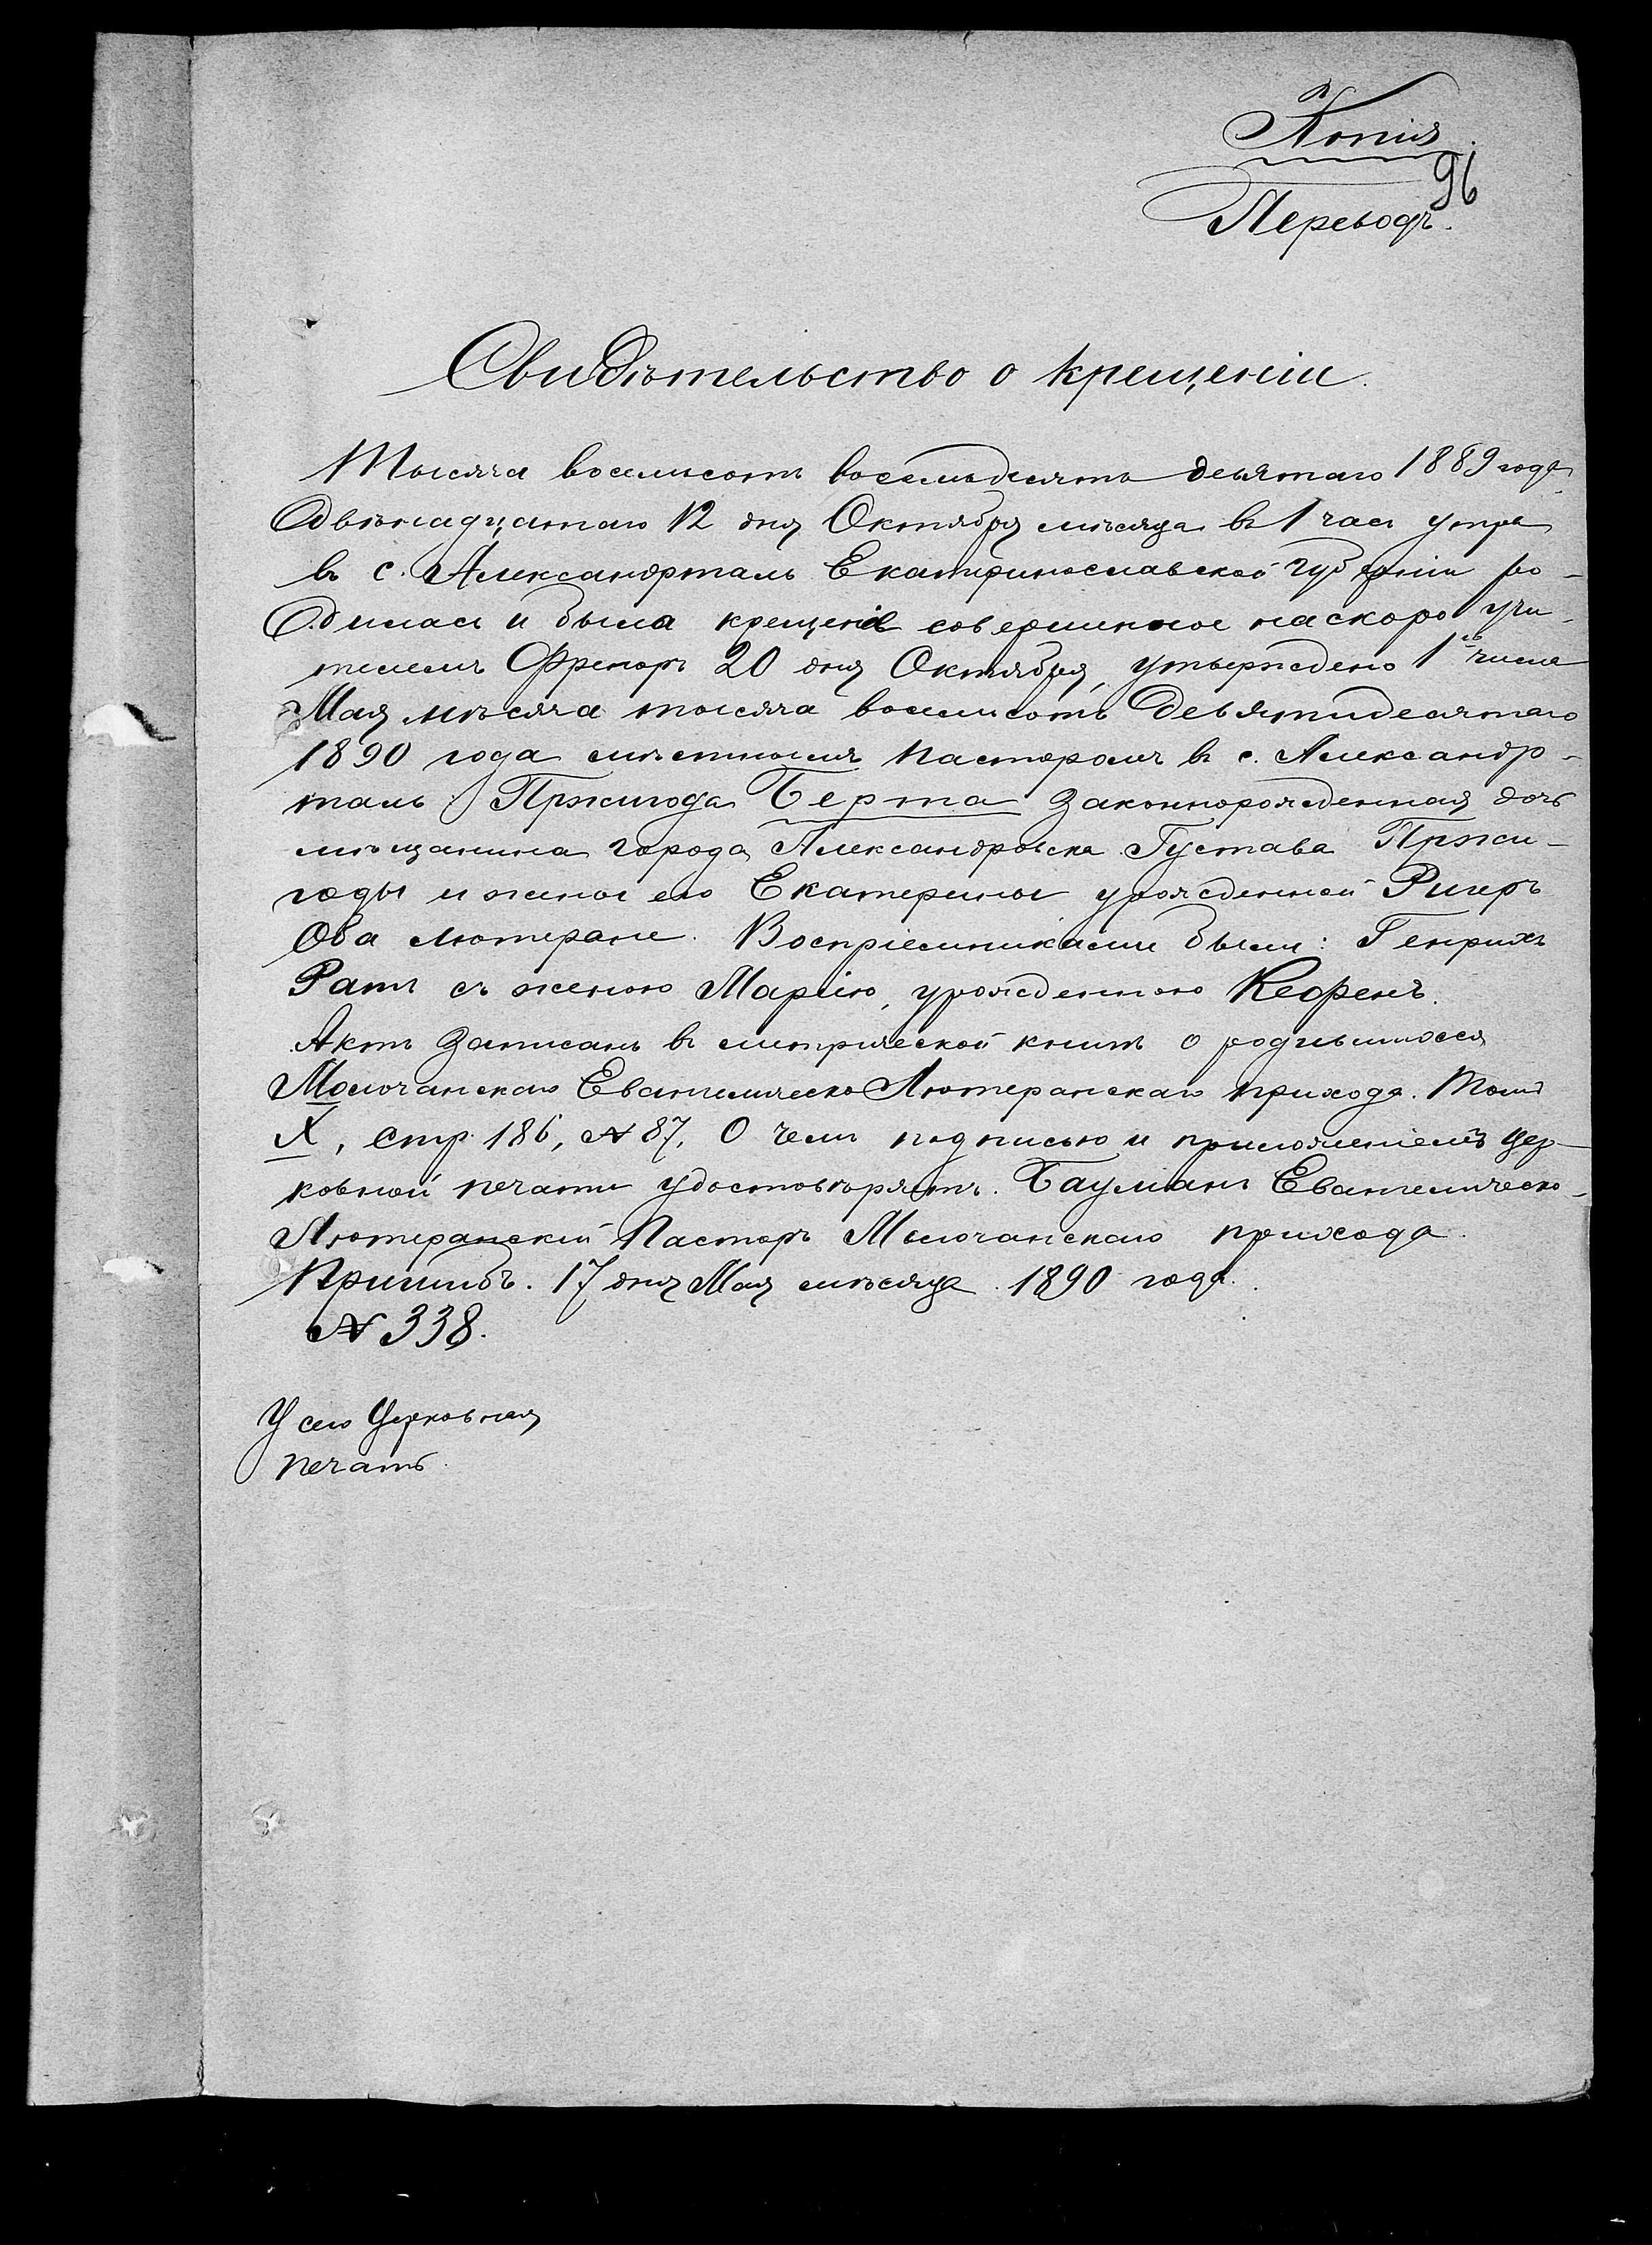 Копія.
96
Переводъ.
Свидѣтельство о крещеніи.
Тысяча восемьсотъ восемьдесятъ девятаго 1889 года
двѣнадцатаго 12 дня Октября мѣсяца въ 1 часъ утра
въ с. Александрталь Екатеринославской губерніи ро-
дилась и была крещена совершенное наскоро учи-
телемъ Френоръ 20 дня Октября, утверждено 1го числа
Мая мѣсяча тысяча восемьсотъ девятидесятаго
1890 года мѣстнымъ пасторомъ въ с. Александр-
таль: Пржигода Берта законнорожденная дочь
мѣщанина города Александровска Густава Пржи-
годы и жены его Екатерины урожденной Ригеръ
Оба лютеране. Воспріемниками были: Генрихъ
Ратъ съ женою Маріею, урожденною Кефенъ.
Актъ записанъ въ метрической книгѣ о родившихся
Молочанскаго Евангелическо Лютеранскаго прихода. Томъ
X, стр. 186, № 87. О чемъ подписью и приложеніемъ цер-
ковной печати удостовѣряетъ. Бауманъ Евангелическо-
Лютеранскій Пасторъ Молочанскаго прихода.
Пришибъ. 17 дня Мая мѣсяца 1890 года.
№ 338.
У сего Церковная
печать.